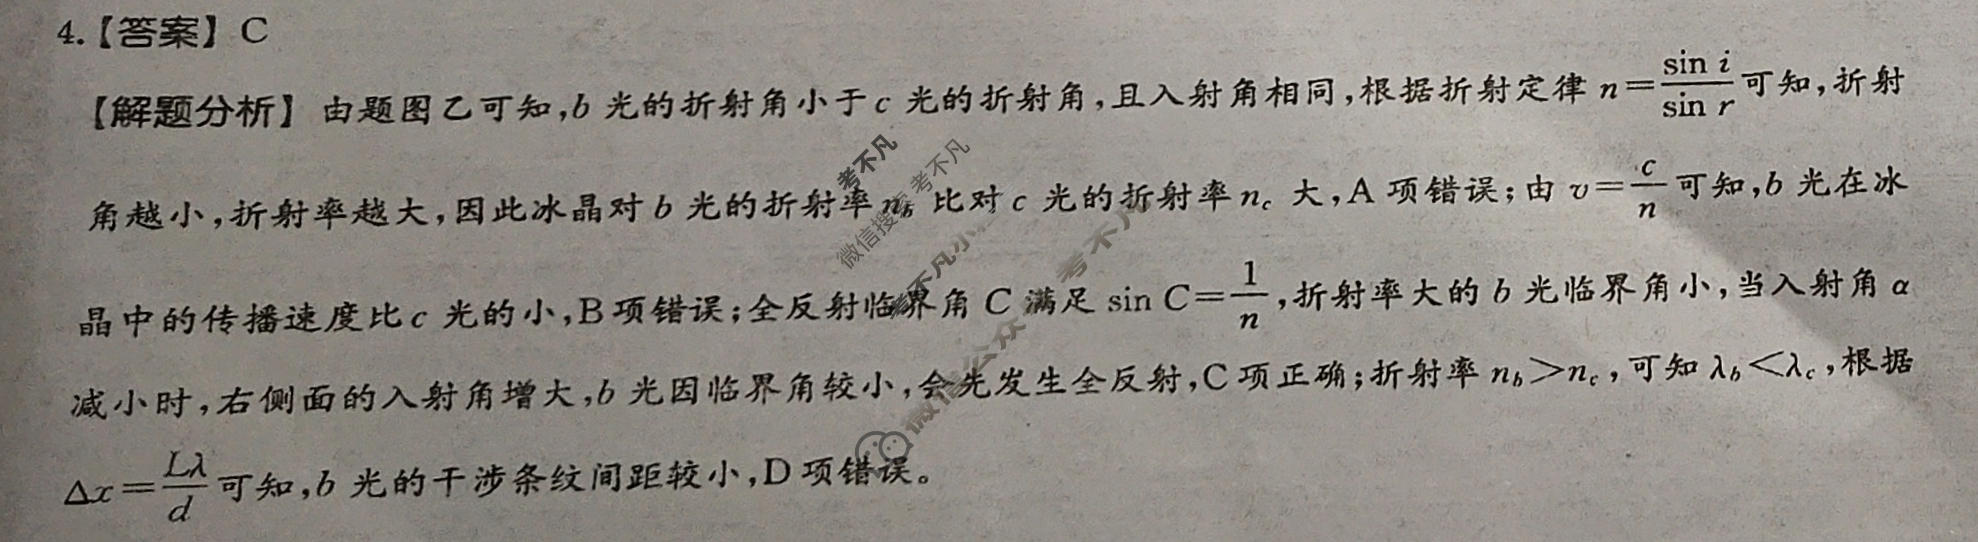 4.【答案】C
【解题分析】由题图乙可知,b 光的折射角小于 c 光的折射角,且入射角相同,根据折射定律 n=\frac{sin i}{sin r}可知,折射
角越小,折射率越大,因此冰晶对 b 光的折射率 n_b 比对 c 光的折射率 n_c 大,A 项错误;由 v=\frac{c}{n}可知,b 光在冰
晶中的传播速度比 c 光的小,B 项错误;全反射临界角 C 满足 sin C=\frac{1}{n},折射率大的 b 光临界角小,当入射角 α
减小时,右侧面的入射角增大,b 光因临界角较小,会先发生全反射,C 项正确;折射率 n_b>n_c,可知 λ_b<λ_c,根据
Δx=\frac{Lλ}{d}可知,b 光的干涉条纹间距较小,D 项错误。
考不凡
微信搜索 考不凡
考不凡小
微信公众 考不凡